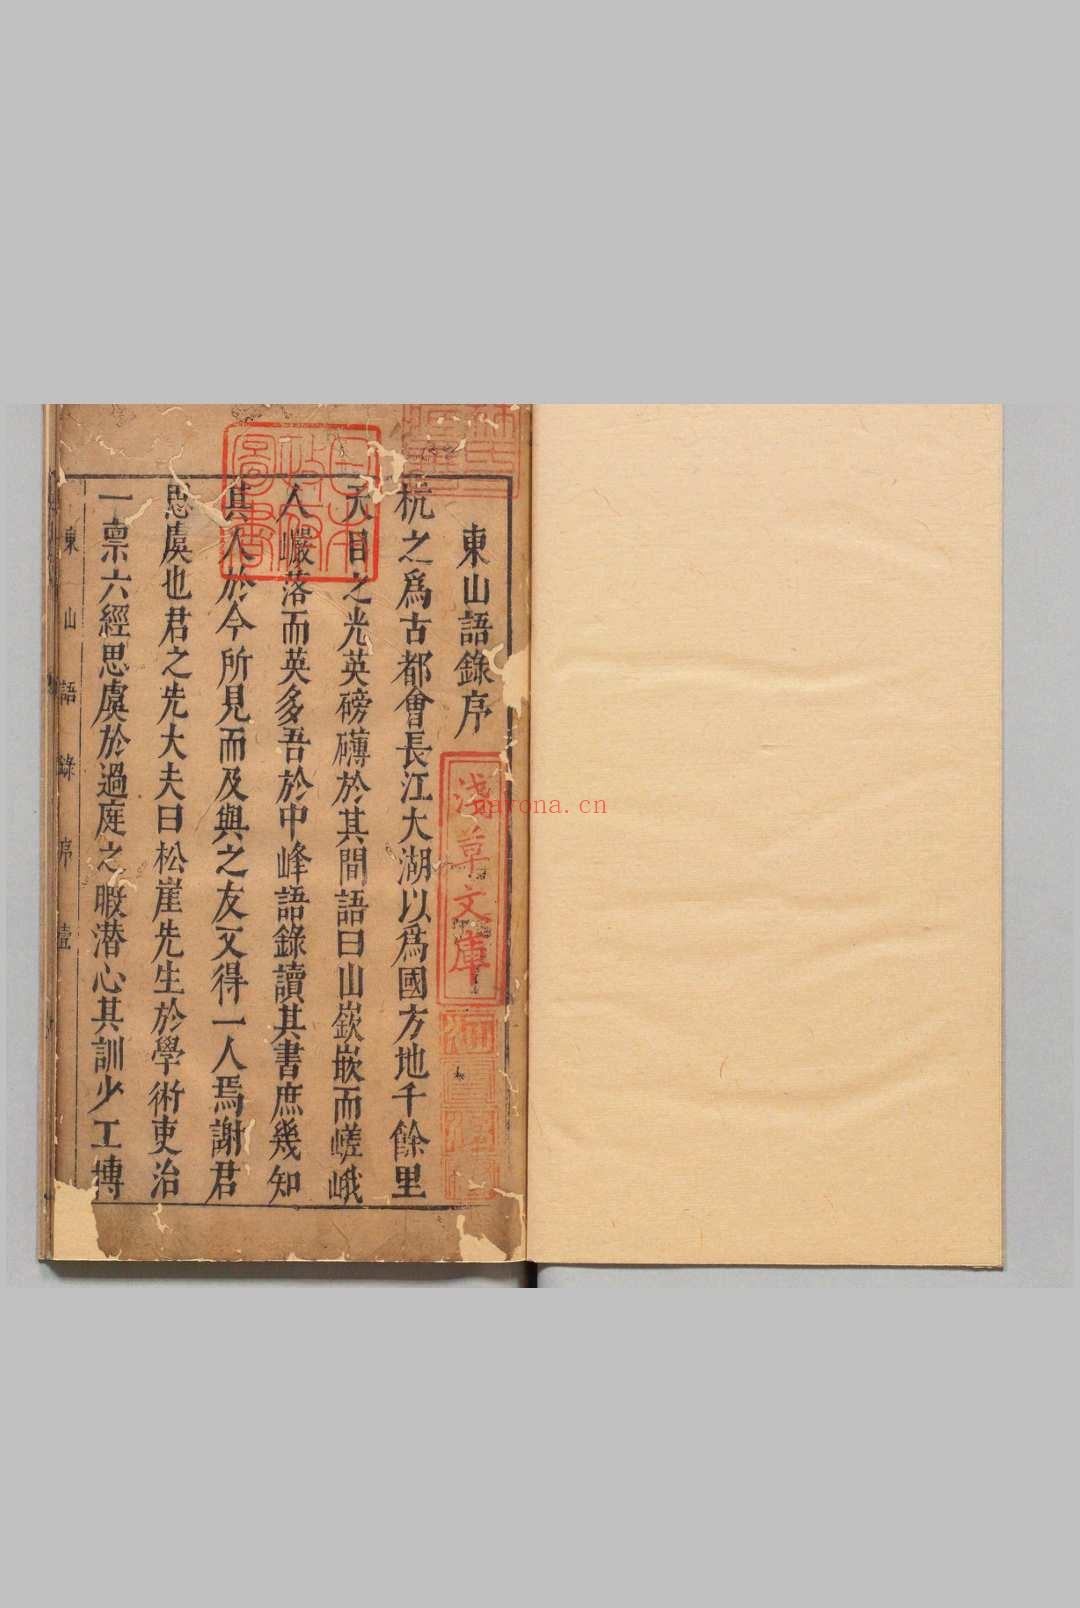 東山語錄序
杭之爲古都會長江大湖以爲國方地千餘里
天目之光英磅礴於其間語曰山嶔嵌而嵯峨
人巖落而英多吾於中峰語錄讀其書庶幾知
其人於今所見而及與之友又得一人焉謝君
思虞也君之先大夫曰松崖先生於學術吏治
一禀六經思虞於過庭之暇潜心其訓少工摶
東山語錄 序 壹
日本政府圖書
淺草文庫
nayona.cn